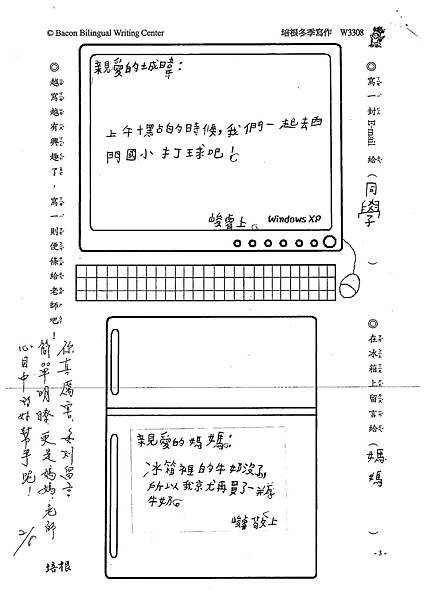 © Bacon Bilingual Writing Center
培根冬季寫作 W3308
◎寫一封E-mail給(同學)
親愛的城暐：
上午十點的時候，我們一起去西
門國小打球吧！
峻睿上。
Windows XP
越寫越有興趣了，寫一則便條給老師吧！
◎在冰箱上留言給(媽媽)
親愛的媽媽：
冰箱裡的牛奶沒了，
所以我就再買了一瓶
牛奶。
峻睿敬上
你真厲害，
簡單明瞭，更是媽媽、老師
心目中的好幫手呢！
2/8
-3-
培根